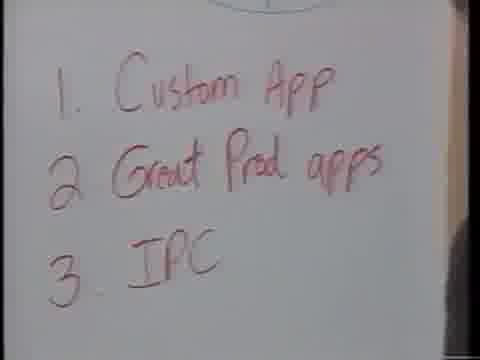 1. Custom App
2 Great Prod apps
3. IPC